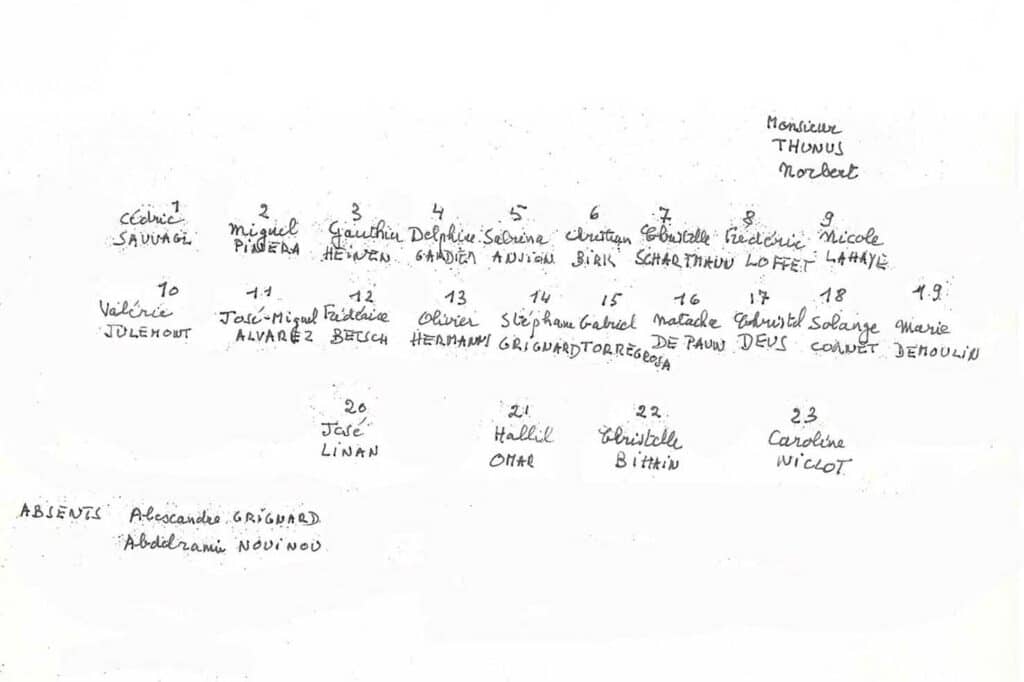 Monsieur
THUNUS
Norbert
1 2 3 4 5 6 7 8 9
Cédric Miguel Gauthier Delphine Sabrina Christian Christelle Frédéric Nicole
SAUVAGE HEINEN GARDIER ANSION BIRK SCHARTMANN LOFFET LAHAYE
10 11 12 13 14 15 16 17 18 19
Valérie José-Miguel Frédérice Olivier Stéphane Gabriel Natacha Christel Solange Marie
JULEMONT ALVAREZ BETSCH HERMANNS GRIGNARD TORREGROSA DE PAUW DEUS CORNET DEMOULIN
20 21 22 23
José Hallil Christelle Caroline
LINAN OMAR BIHAIN NICLOT
ABSENTS Alexandre GRIGNARD
NOUINOU